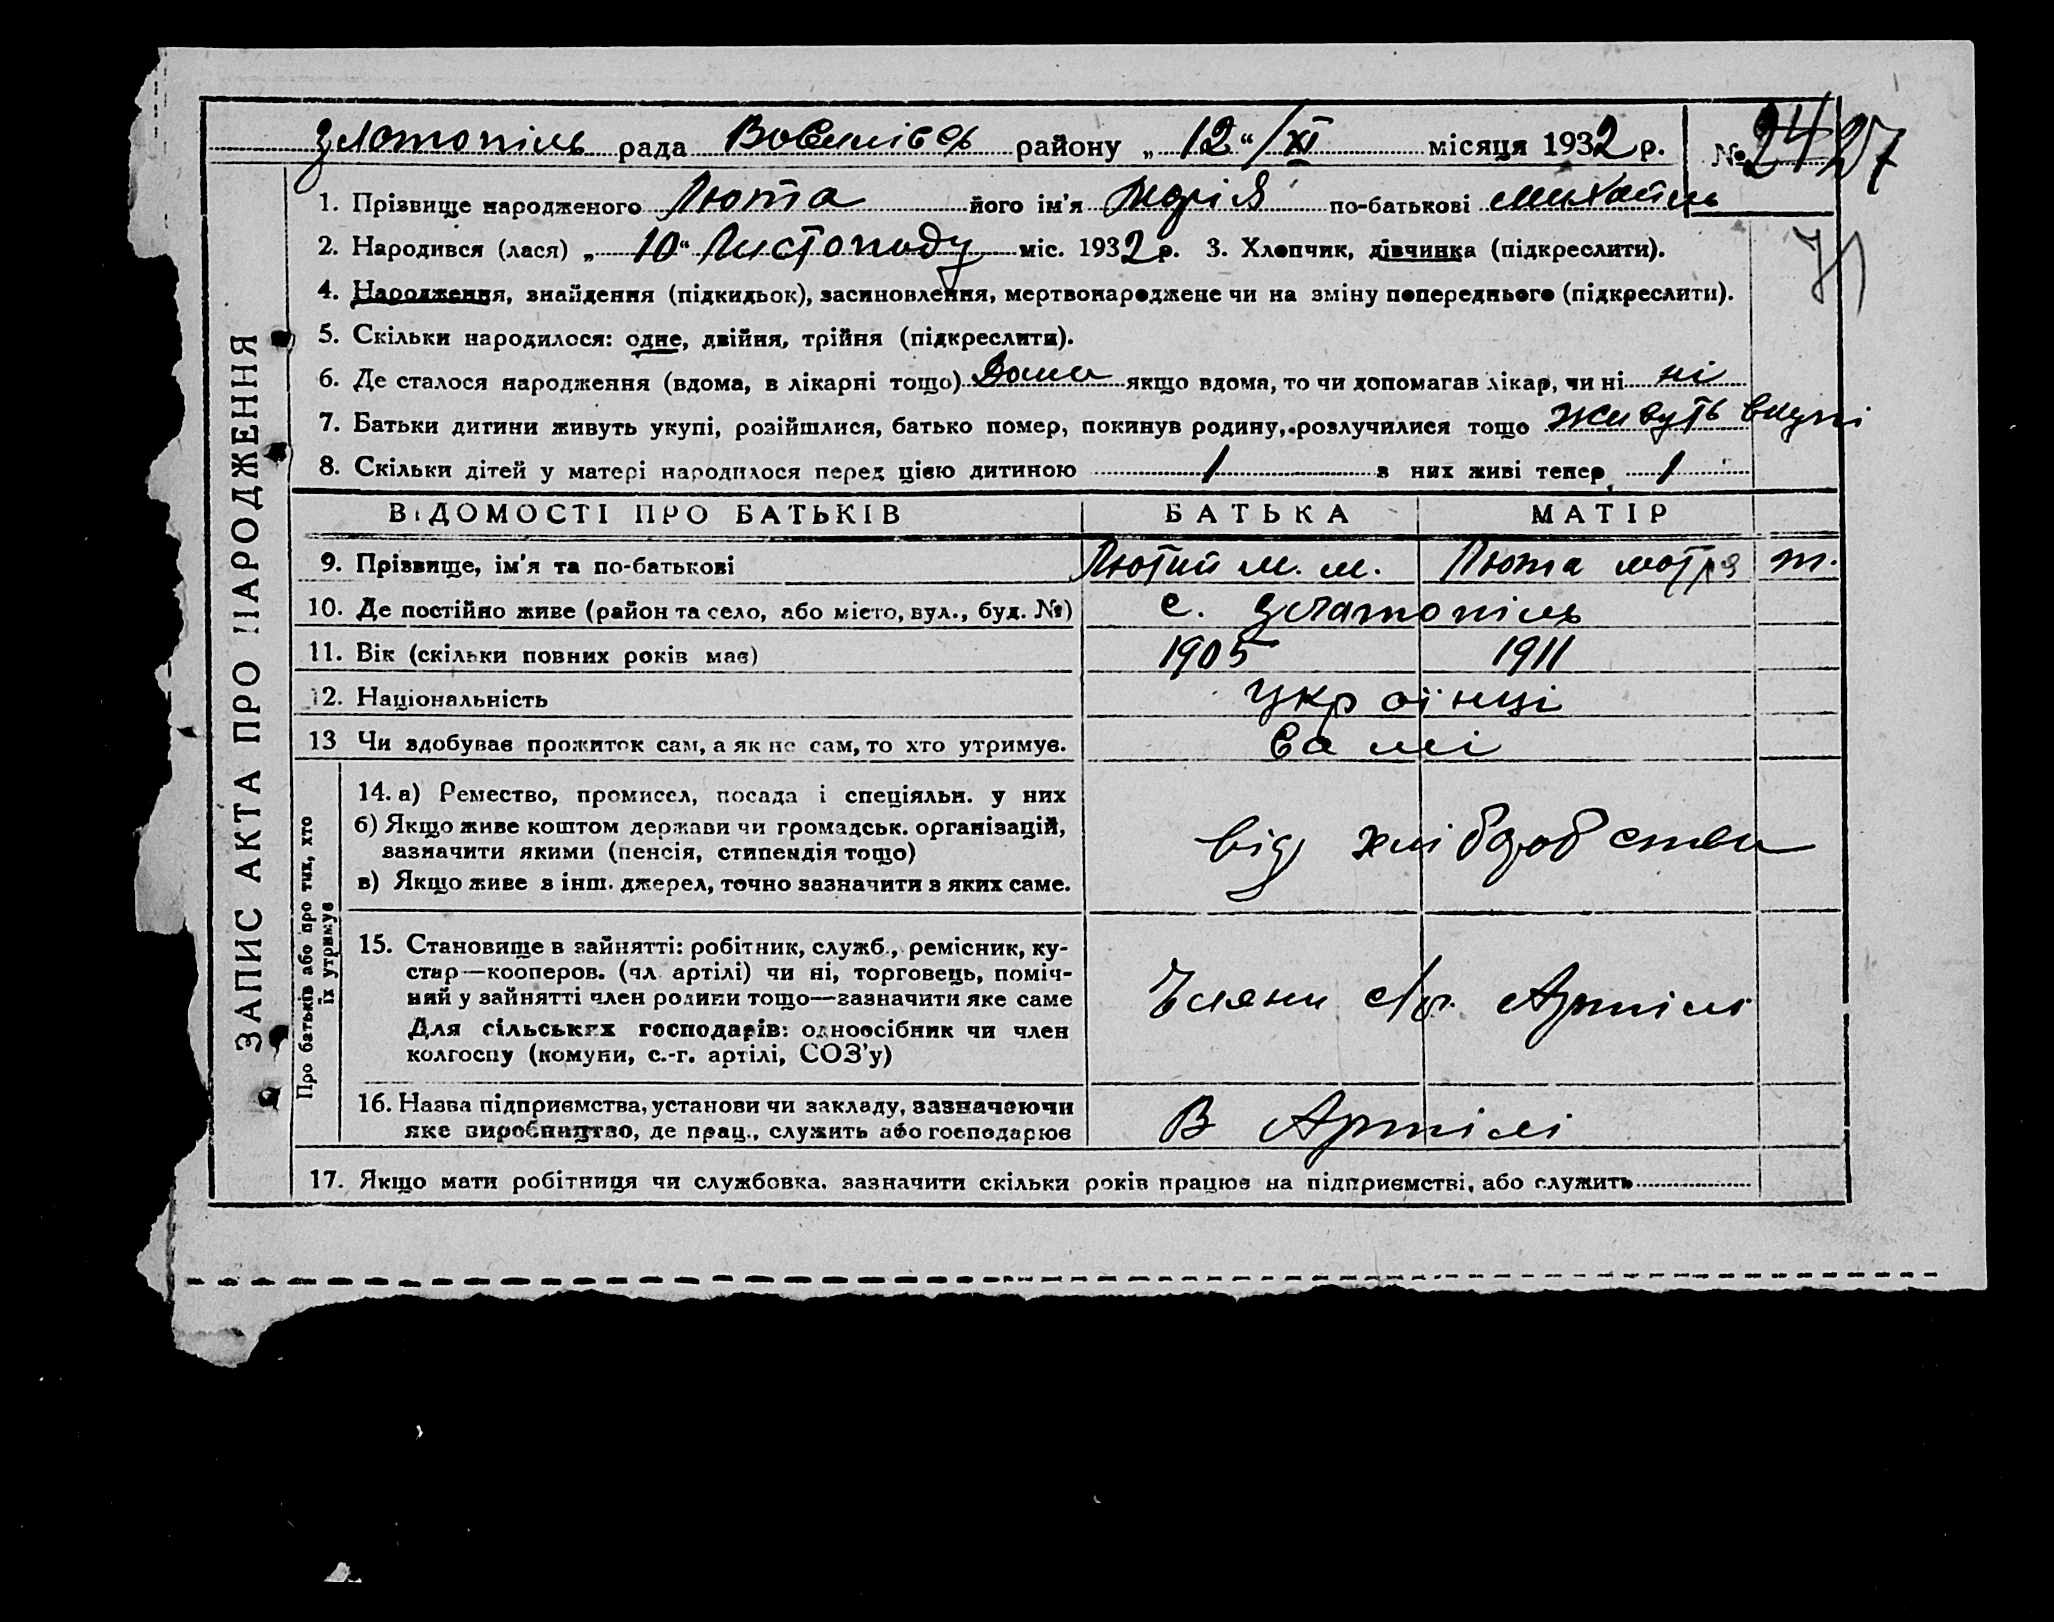 Златопіль рада Василівсь району „ 12 “ / XI місяця 1932 р. № 24 27
1. Прізвище народженого Люта його ім'я Марія по-батькові Михайль
2. Народився (лася) „ 10 “ Листопаду міс. 1932 р. 3. Хлопчик, дівчинка (підкреслити).
4. Народження, знайдення (підкидьок), засиновлення, мертвонароджене чи на зміну попереднього (підкреслити).
5. Скільки народилося: одне, двійня, трійня (підкреслити).
6. Де сталося народження (вдома, в лікарні тощо) Дома якщо вдома, то чи допомагав лікар, чи ні ні
7. Батьки дитини живуть укупі, розійшлися, батько помер, покинув родину, розлучилися тощо живуть вкупі
8. Скільки дітей у матері народилося перед цією дитиною 1 з них живі тепер 1
ЗАПИС АКТА ПРО НАРОДЖЕННЯ
ВІДОМОСТІ ПРО БАТЬКІВ БАТЬКА МАТІР
9. Прізвище, ім'я та по-батькові Лютий М. М. Люта Мотря т.
10. Де постійно живе (район та село, або місто, вул., буд. №) с. Златопіль
11. Вік (скільки повних років має) 1905 1911
12. Національність українці
13 Чи здобував прожиток сам, а як не сам, то хто утримув. Самі
Про батьків або про тих, хто
їх утримув
14. а) Ремество, промисел, посада і спеціяльн. у них
б) Якщо живе коштом держави чи громадськ. організацій,
зазначити якими (пенсія, стипендія тощо)
в) Якщо живе з інш. джерел, точно зазначити з яких саме.
від хліборобства
15. Становище в зайнятті: робітник, служб., ремісник, ку-
стар—кооперов. (чл. артілі) чи ні, торговець, поміч-
ний у зайнятті член родини тощо—зазначити яке саме
Для сільських господарів: одноосібник чи член
колгоспу (комуни, с.-г. артілі, СОЗ'у)
Члени с/г. Артілі
16. Назва підприємства, установи чи закладу, зазначаючи
яке виробництво, де прац., служить або господарює
В Артілі
17. Якщо мати робітниця чи службовка, зазначити скільки років працює на підприємстві, або служить